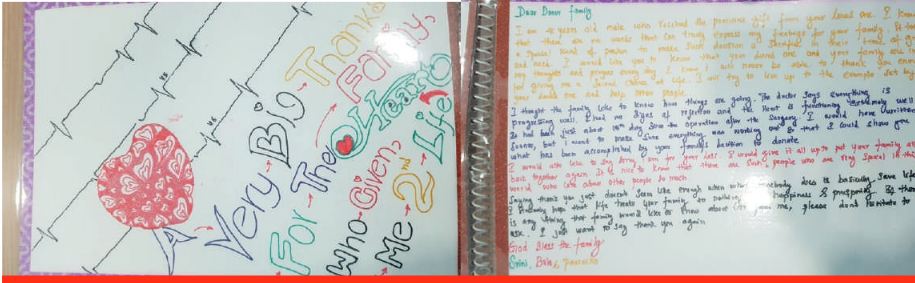 Very Big Thanks
For The Old Heart Family,
Who Given,
Me 2nd Life
Dear Donor family
I am 48 years old male who received the precious gift from your loved one. I know
that there are no words that can truly express my feelings for your family. It takes
a special kind of person to make such decision
and need. I would like you to know that your loved one and your family are in
my thoughts and prayers every day. I know I will never be able to thank you enough
for giving me a second chance of life. I will try to live up to the example set by
your loved one and help other people.
I thought the family like to know how things are going. The doctor says everything is
progressing well. I had no signs of rejection and the heart is functioning extremely well
just about 10th day since the operation after the surgery. I would have written
sooner, but I want to make sure everything was working and so that I could show you
what has been accomplished by your family's decision to donate
I would also like to say sorry, am for your loss. I would give it all up to put your family all
back together again. It is nice to know that there are such people who are very special in this
world, who care about other people so much
Saying thank you just doesn't seem like enough when what somebody does is basically save life
I sincerely hope that life treats your family to nothing but happiness & prosperity. If there
is any thing that family would like to know about me, please dont hesitate to
ask. I just want to say thank you again
God Bless the family
Srini, Bala,